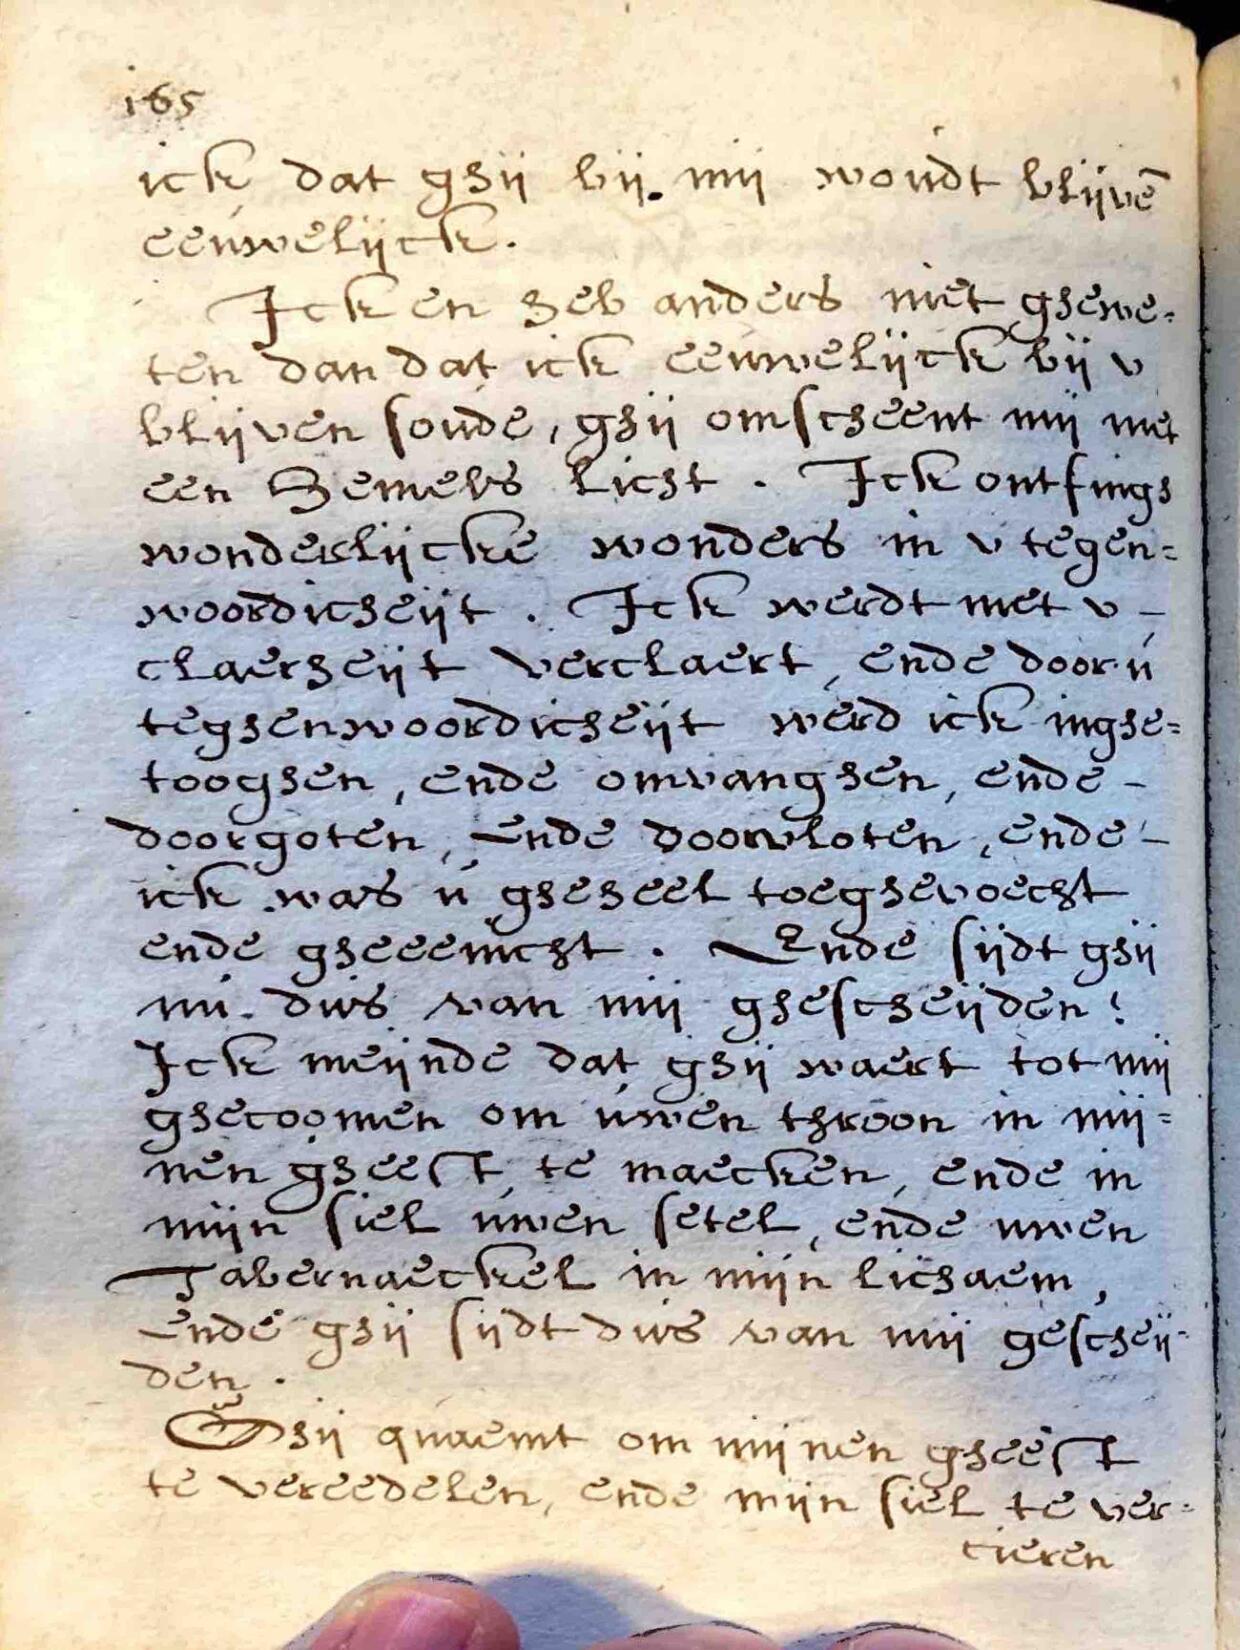 165
ick dat ghij bij. mij woudt blijvē
eeuwelijck.
Ick en heb anders niet ghewe=
ten dan dat ick eeuwelijck bij v
blijven soude, ghij omscheent mij met
een hemels licht. Ick ontfingh
wonderlijcke wonders in v tegen=
woordicheijt. Ick werdt met v -
claerheijt verclaert, ende door u
teghenwoordicheijt werd ick inghe=
tooghen, ende omvanghen, ende -
doorgoten, Ende doorvloten, ende -
ick was u gheheel toeghevoecht
ende gheeenicht. Ende sijdt ghij
nu. dus van mij ghescheijden?
Ick meijnde dat ghij waert tot mij
ghecoomen om uwen throon in mij=
nen gheest te maecken, ende in
mijn siel uwen setel, ende uwen
Tabernaeckel in mijn lichaem,
Ende ghij sijdt dus van mij gescheij-
den.
Ghij quaemt om mijnen gheest
te vereedelen, ende mijn siel te ver=
cieren